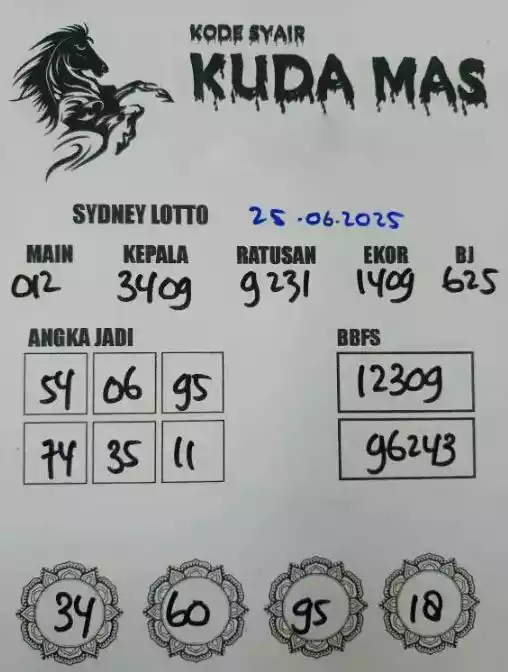 KODE SYAIR
KUDA MAS
SYDNEY LOTTO 25.06.2025
MAIN KEPALA RATUSAN EKOR BJ
012 3409 9231 1409 625
ANGKA JADI BBFS
54 06 95 12309
74 35 11 96243
34 60 95 18